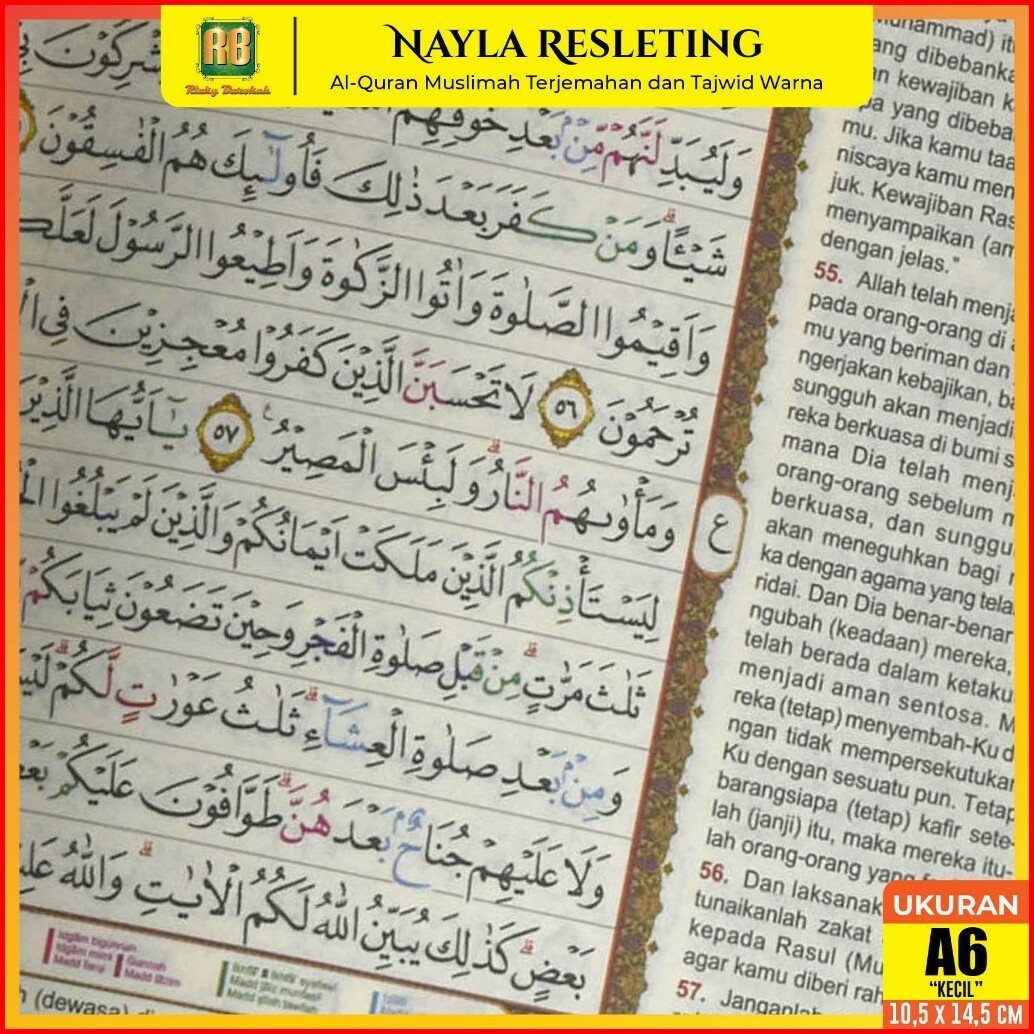 RB
Rizky Barokah
NAYLA RESLETING
Al-Quran Muslimah Terjemahan dan Tajwid Warna
وَلَيُبَدِّلَنَّهُمْ مِّنْۢ بَعْدِ خَوْفِهِمْ
شَيْـًٔاۗ وَمَنْ كَفَرَ بَعْدَ ذٰلِكَ فَاُولٰۤىِٕكَ هُمُ الْفٰسِقُوْنَ
وَاَقِيْمُوا الصَّلٰوةَ وَاٰتُوا الزَّكٰوةَ وَاَطِيْعُوا الرَّسُوْلَ لَعَلَّكُ
تُرْحَمُوْنَ ٥٦ لَا تَحْسَبَنَّ الَّذِيْنَ كَفَرُوْا مُعْجِزِيْنَ فِى الْ
وَمَأْوٰىهُمُ النَّارُۗ وَلَبِئْسَ الْمَصِيْرُ ٥٧ يٰٓاَيُّهَا الَّذِيْنَ
لِيَسْتَأْذِنْكُمُ الَّذِيْنَ مَلَكَتْ اَيْمَانُكُمْ وَالَّذِيْنَ لَمْ يَبْلُغُوا
ثَلٰثَ مَرّٰتٍۗ مِنْ قَبْلِ صَلٰوةِ الْفَجْرِ وَحِيْنَ تَضَعُوْنَ ثِيَابَكُمْ
وَمِنْۢ بَعْدِ صَلٰوةِ الْعِشَاۤءِۗ ثَلٰثُ عَوْرٰتٍ لَّكُمْۗ لَيْسَ
وَلَا عَلَيْهِمْ جُنَاحٌۢ بَعْدَهُنَّۗ طَوَّافُوْنَ عَلَيْكُمْ
بَعْضٍۗ كَذٰلِكَ يُبَيِّنُ اللّٰهُ لَكُمُ الْاٰيٰتِۗ وَاللّٰهُ
ع
uhammad) it
ang dibebanka
n kewajiban k
pa yang dibeba
mu. Jika kamu taa
niscaya kamu men
juk. Kewajiban Ras
menyampaikan (am
dengan jelas."
55. Allah telah menj
pada orang-orang di
mu yang beriman dan
ngerjakan kebajikan, ba
sungguh akan menjadi
reka berkuasa di bumi s
mana Dia telah menj
orang-orang sebelum m
berkuasa, dan sunggu
akan meneguhkan bagi
ka dengan agama yang tela
ridai. Dan Dia benar-benar
ngubah (keadaan) mereka,
telah berada dalam ketaku
menjadi aman sentosa. M
reka (tetap) menyembah-Ku d
ngan tidak mempersekutukan
Ku dengan sesuatu pun. Tetap
barangsiapa (tetap) kafir sete-
lah (janji) itu, maka mereka itu-
lah orang-orang yang
56. Dan laksanak
tunaikanlah zakat
kepada Rasul (Mu
agar kamu diberi rah
57. Janganlah
(dewasa)
UKURAN
A6
"KECIL"
10,5 X 14,5 CM